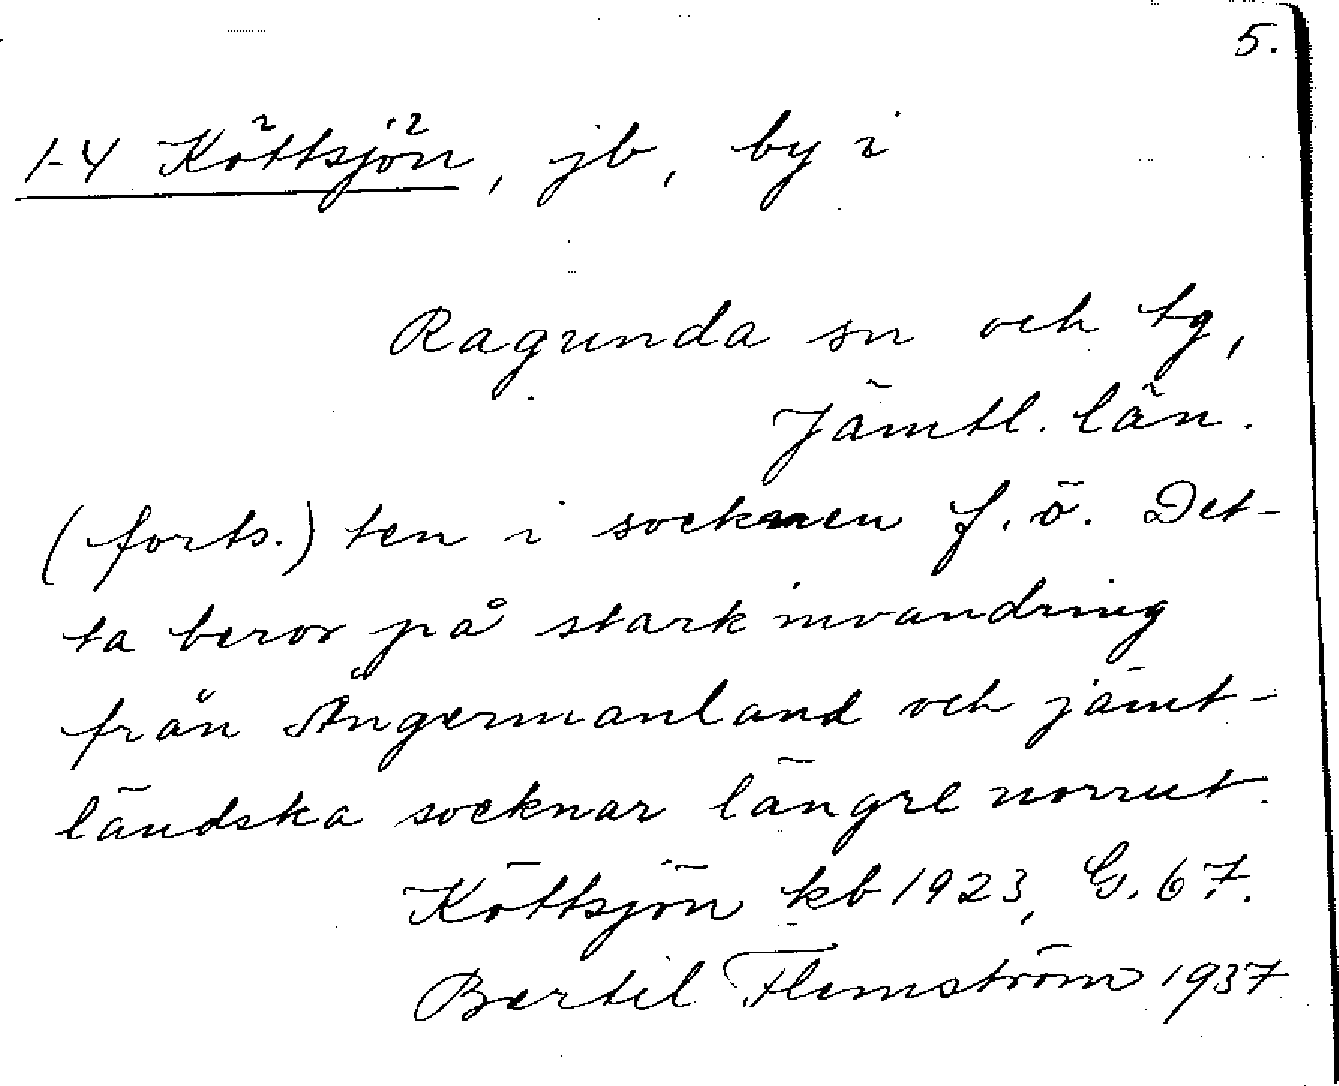 5.
1-4 Köttsjön, jb, by i
Ragunda sn och tg,
Jämtl. län.
(forts.) ten i socknen f. ö. Det-
ta beror på stark invandring
från Ångermanland och jämt-
ländska socknar längre norrut.
Köttsjön kb 1923, G. 67.
Bertil Flemström 1937